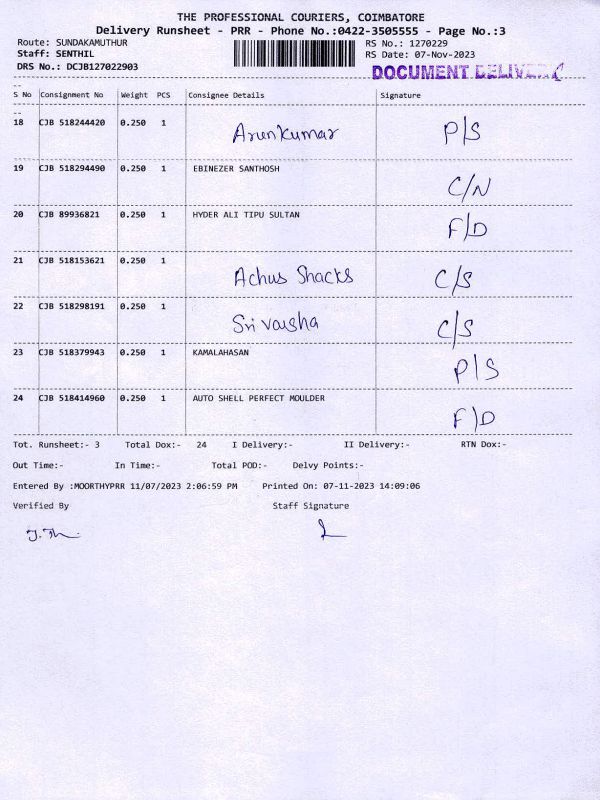 THE PROFESSIONAL COURIERS, COIMBATORE
Delivery Runsheet - PRR - Phone No.:0422-3505555 - Page No.:3
Route: SUNDAKAMUTHUR RS No.: 1270229
Staff: SENTHIL RS Date: 07-Nov-2023
DRS No.: DCJB127022903 DOCUMENT DELIVERY
S No Consignment No Weight PCS Consignee Details Signature
18 CJB 518244420 0.250 1 Arunkumar P/S
19 CJB 518294490 0.250 1 EBINEZER SANTHOSH C/N
20 CJB 89936821 0.250 1 HYDER ALI TIPU SULTAN F/D
21 CJB 518153621 0.250 1 Achus Shacks C/S
22 CJB 518298191 0.250 1 Sri Varsha C/S
23 CJB 518379943 0.250 1 KAMALAHASAN P/S
24 CJB 518414960 0.250 1 AUTO SHELL PERFECT MOULDER F/D
Tot. Runsheet:- 3 Total Dox:- 24 I Delivery:- II Delivery:- RTN Dox:-
Out Time:- In Time:- Total POD:- Delvy Points:-
Entered By :MOORTHYPRR 11/07/2023 2:06:59 PM Printed On: 07-11-2023 14:09:06
Verified By Staff Signature